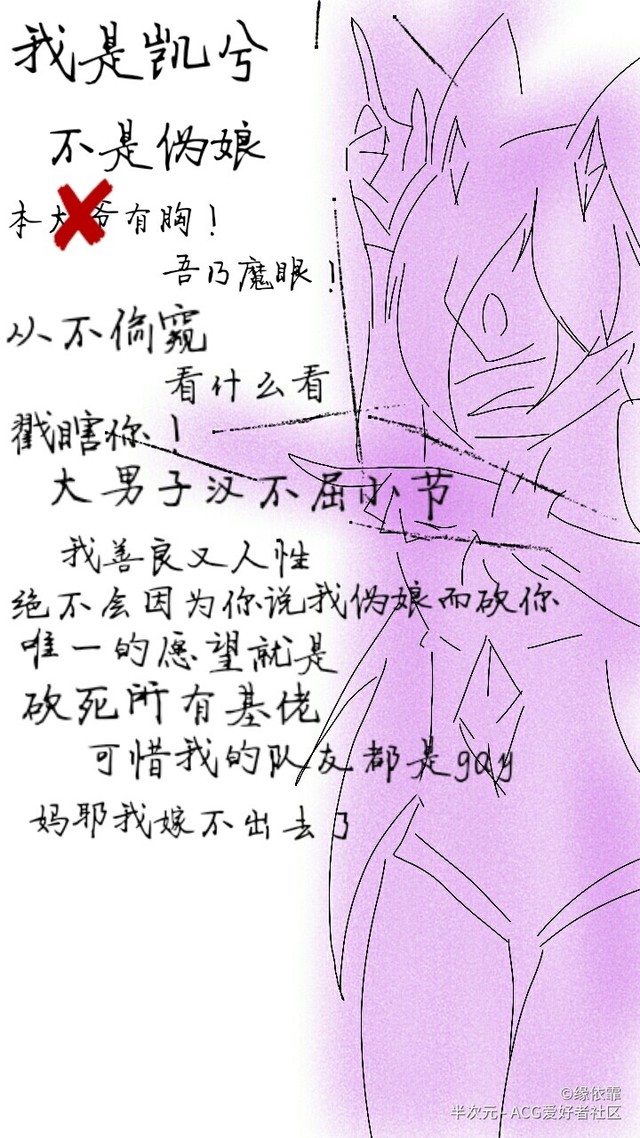 我是凯兮
不是伪娘
本大爷有胸！
吾乃魔眼！
从不偷窥
看什么看
戳瞎你！
大男子汉不屈小节
我善良又人性
绝不会因为你说我伪娘而砍你
唯一的愿望就是
砍死所有基佬
可惜我的队友都是gay
妈耶我嫁不出去了
©缘依霏
半次元 - ACG爱好者社区